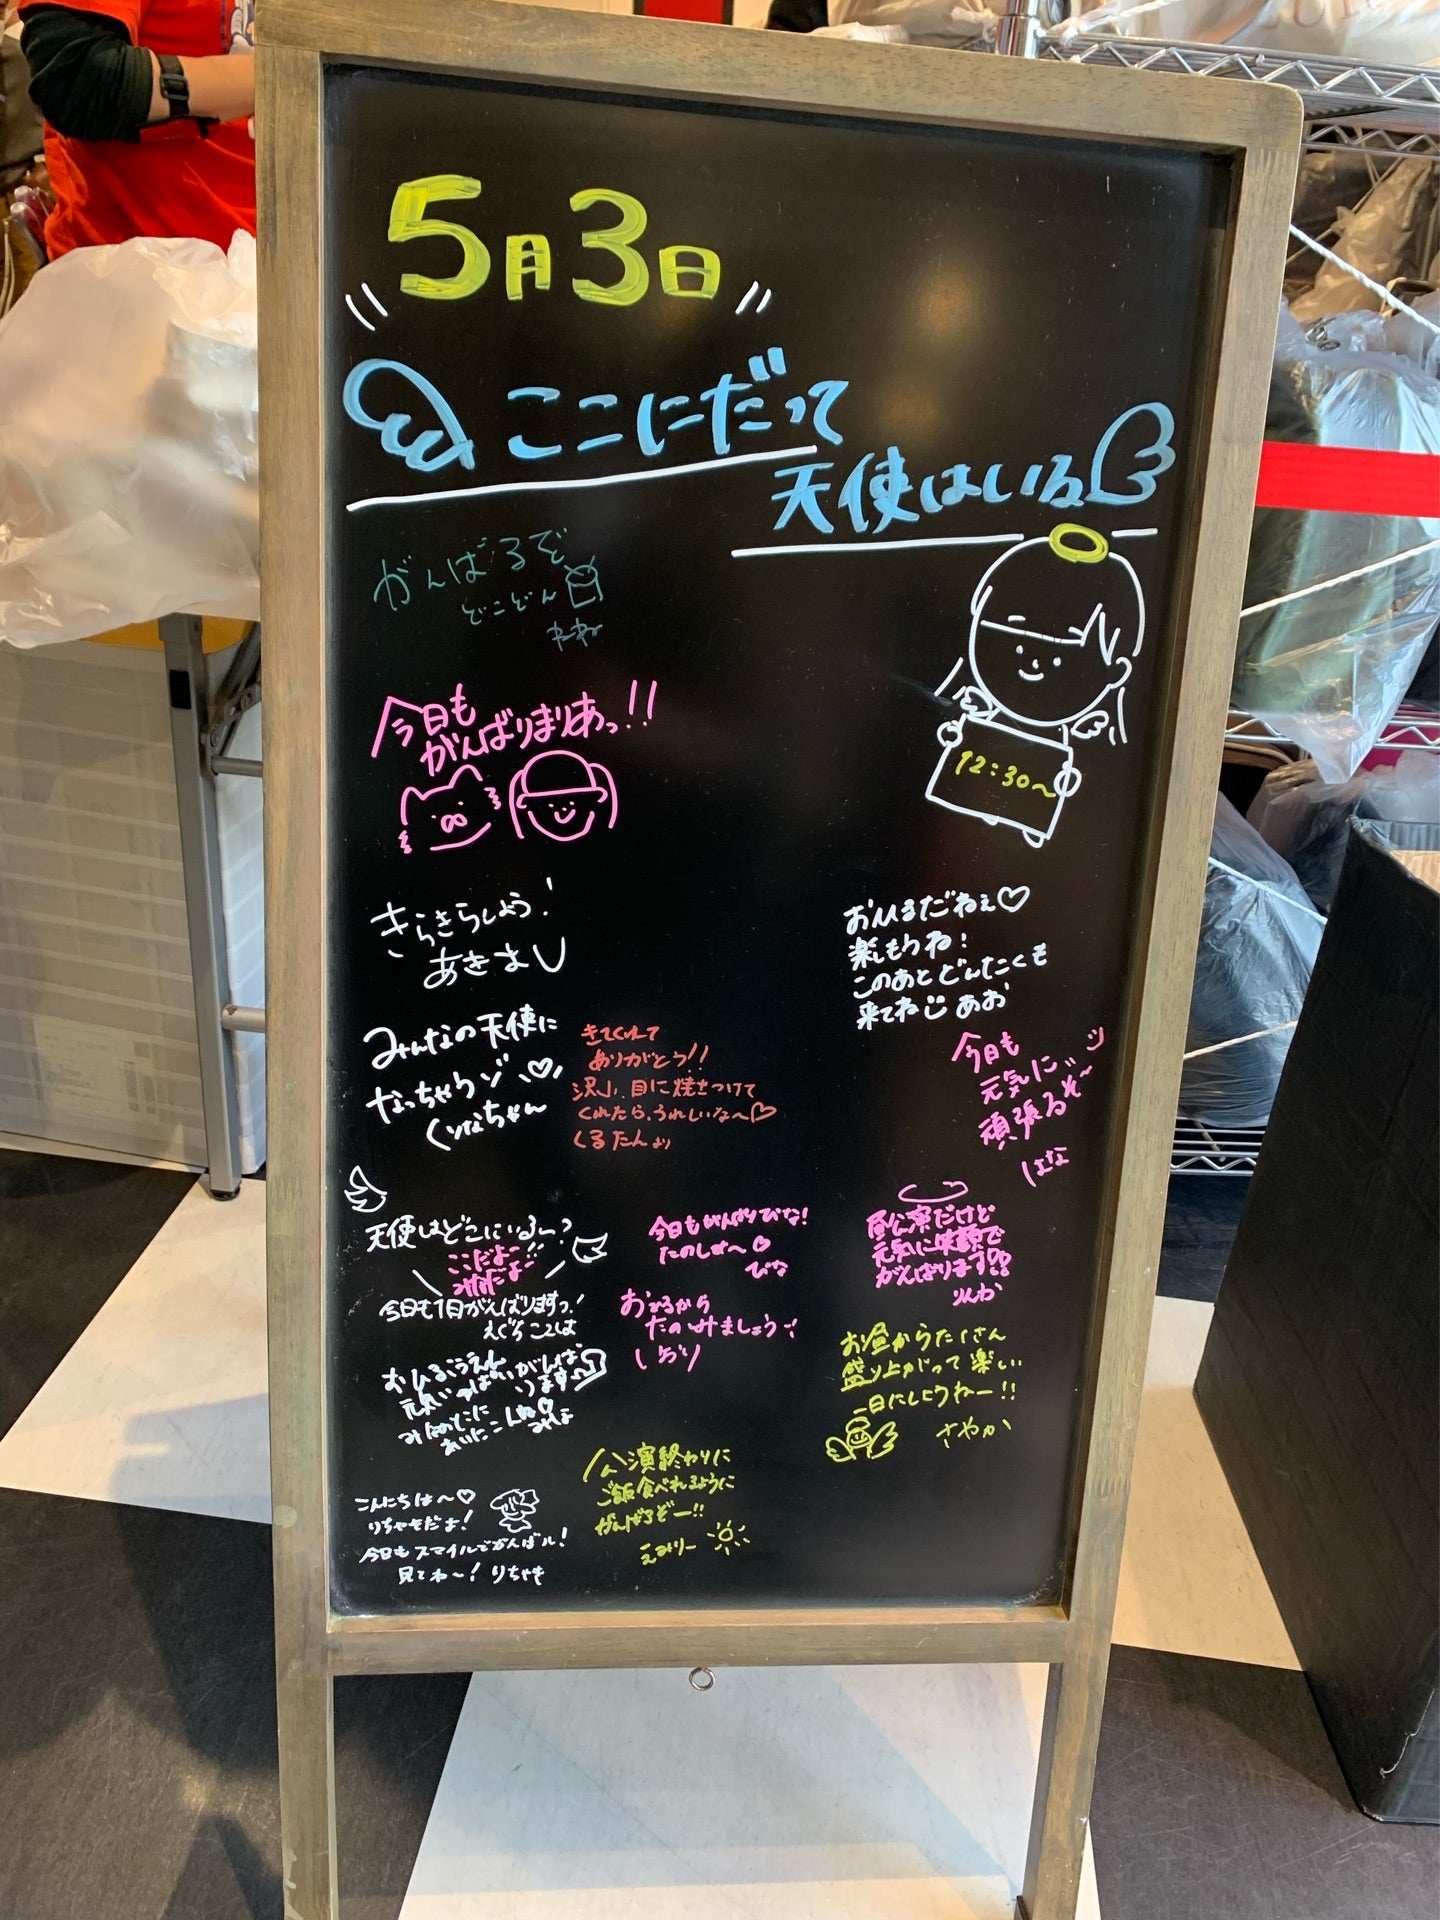 5月3日
ここにだって
天使はいる
がんばるで
どこどん
12:30〜
今日も
がんばりまりあっ!!
きらきらしよう!
あきよし
おひるだねぇ♡
楽しもうね!
このあとどんたくも
来てね あお
みんなの天使に
なっちゃうゾ♡
くりなちゃん
きてくれて
ありがとう!!
沢山、目に焼きつけて
くれたら、うれしいな〜♡
くるたんより
今日も
元気に
頑張るぞ〜
はな
天使はどこにいる〜?
ここだよ
今日も1日がんばりますっ!
今日もがんばりびな!
たのしも〜♡
びな
昼公演だけど
元気に笑顔で
がんばります!!
りんか
おひるから
たのしみましょう!
しおり
お昼からたくさん
盛り上がって楽しい
一日にしようねー!!
さやか
元気いっぱいがんば
ります
みんなのとこに
公演終わりに
ご飯食べれるように
がんばるぞー!!
えみりー
こんにちは〜♡
りちゃもだよ!
今日もスマイルでがんばル!
見てね〜! りちゃも